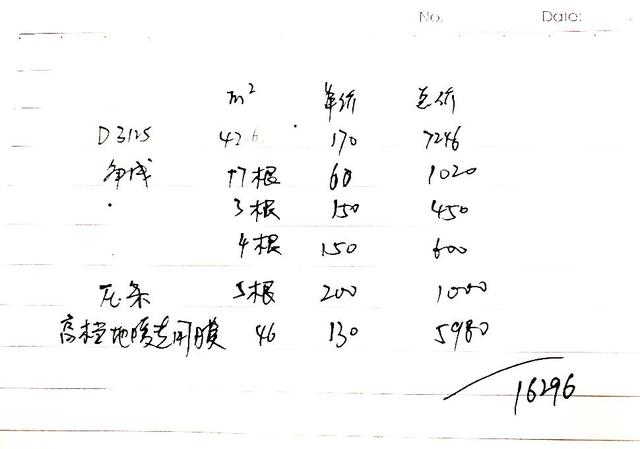 No. Date:
m² 单价 总价
D3125 42.6 170 7246
17根 60 1020
3根 150 450
4根 150 600
5根 200 1000
高档地暖专用膜 46 130 5980
16296